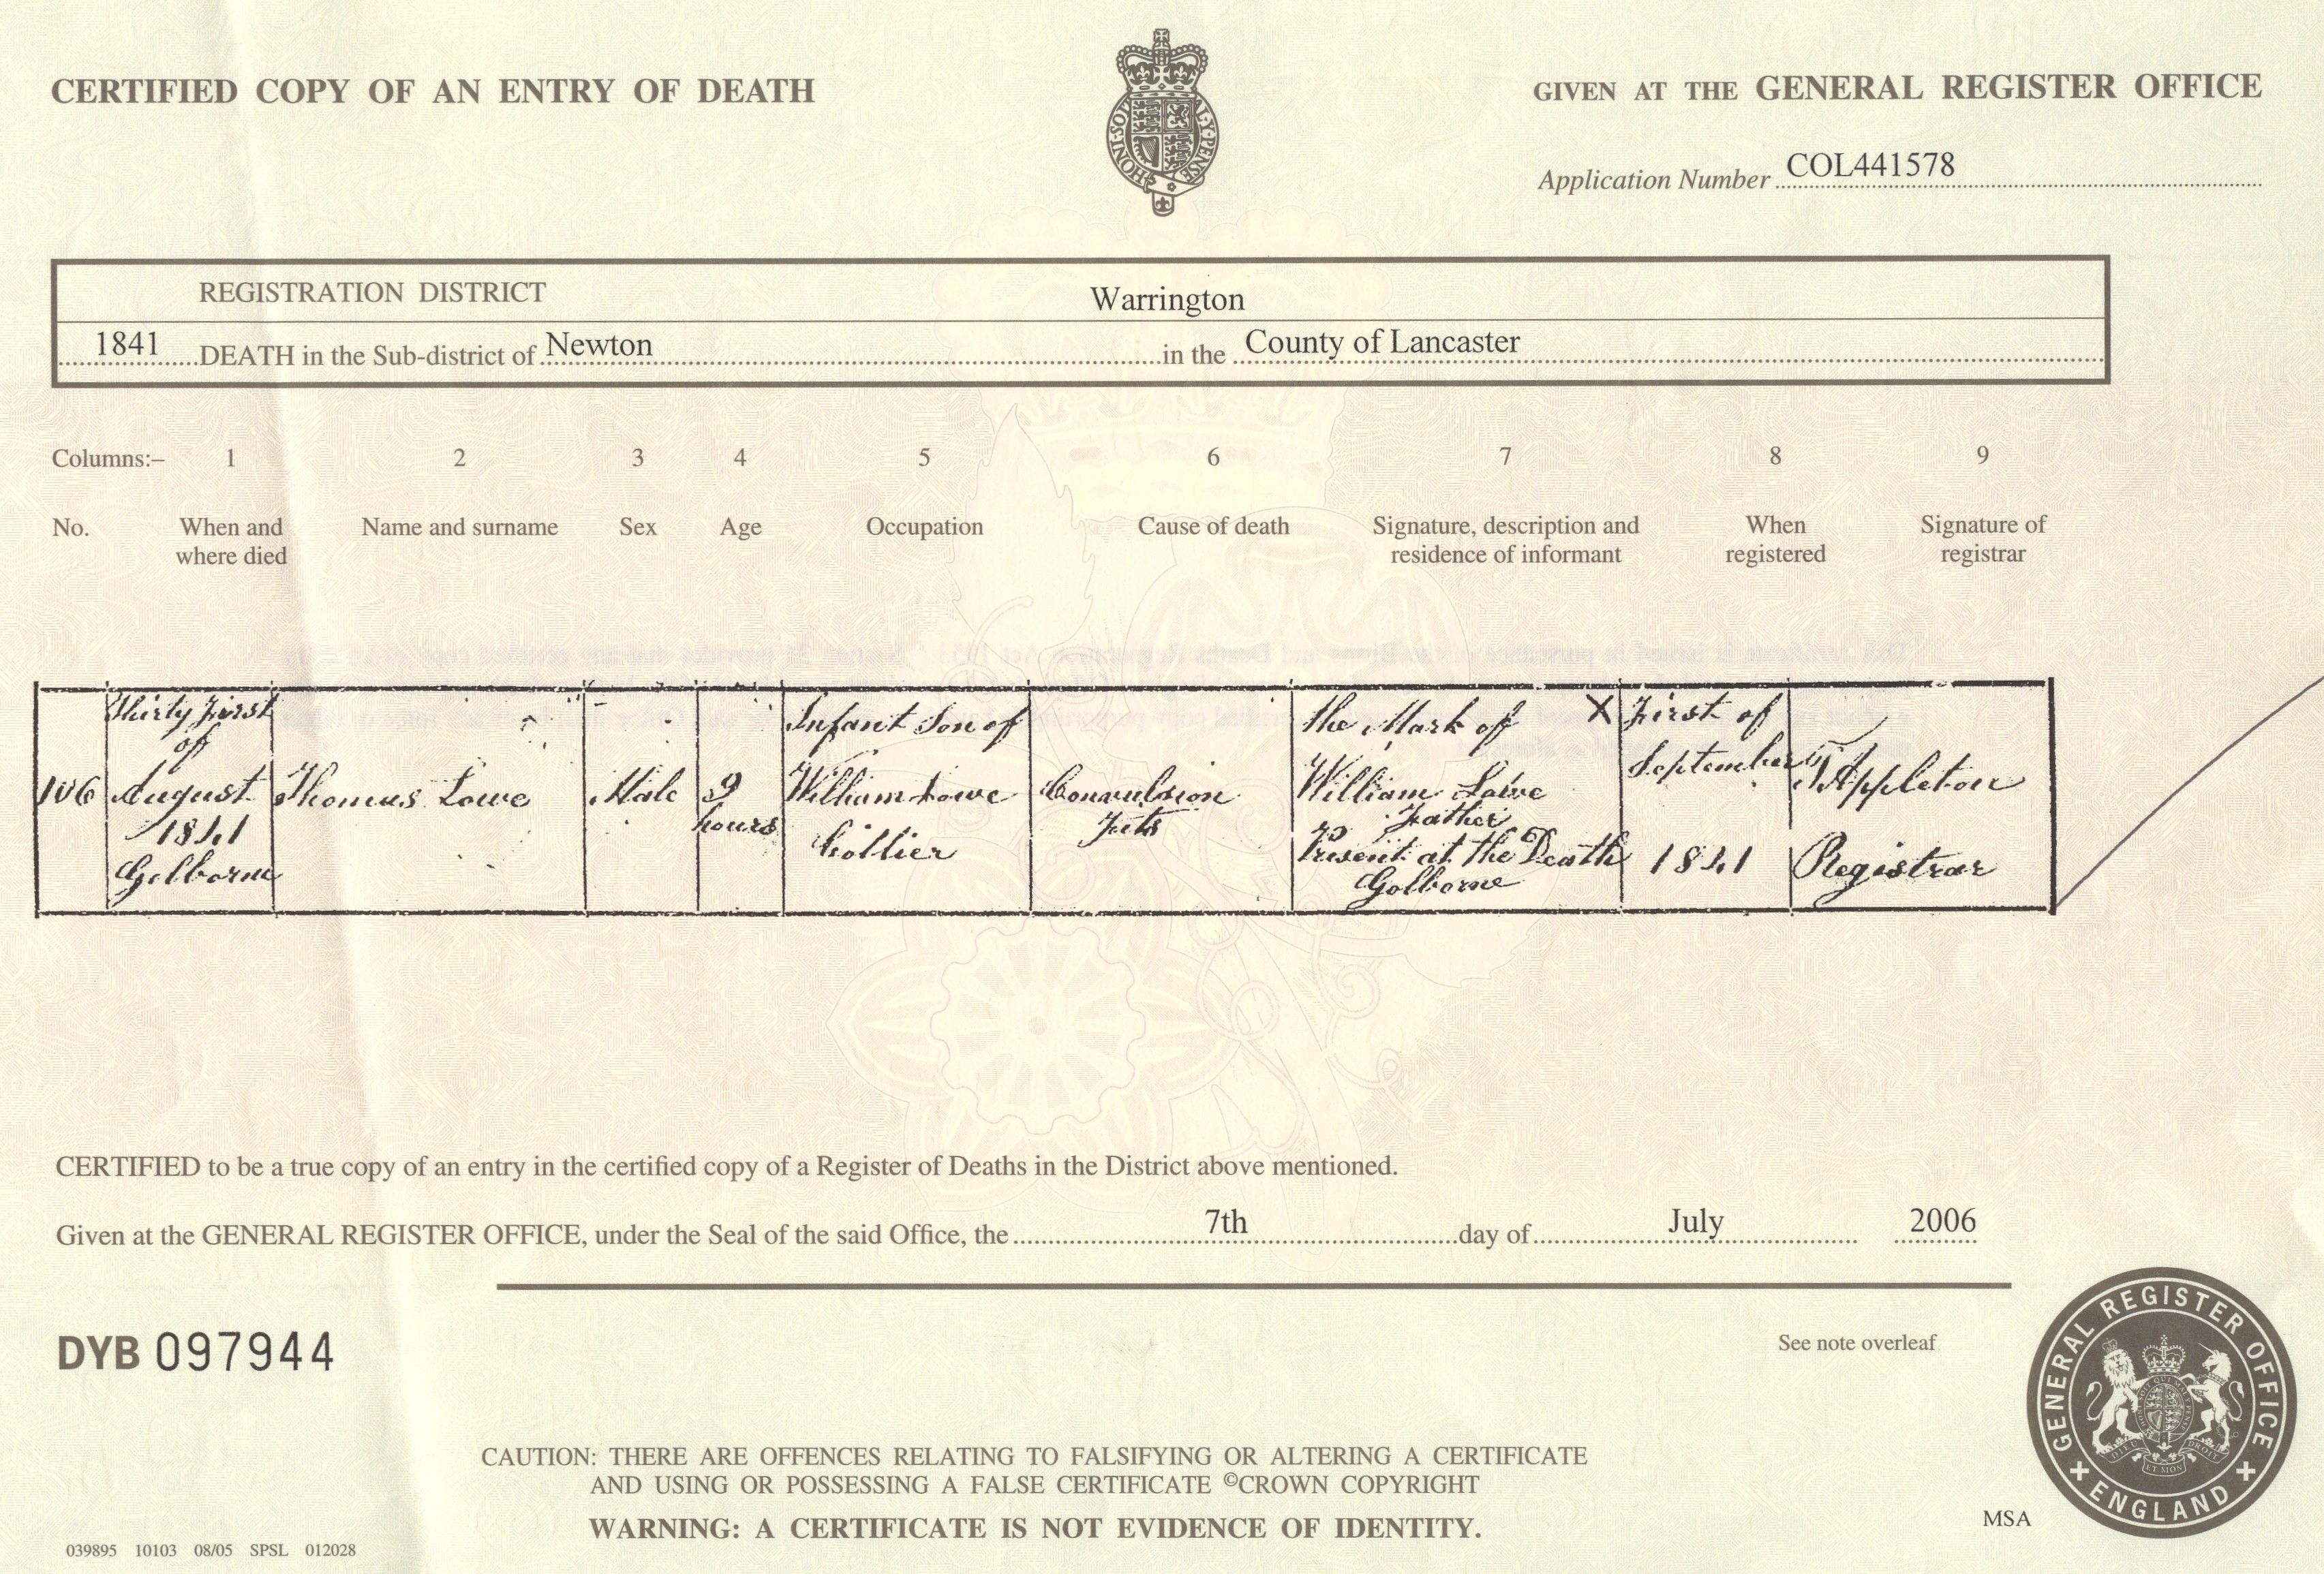 CERTIFIED COPY OF AN ENTRY OF DEATH
GIVEN AT THE GENERAL REGISTER OFFICE
HONI·SOI
·Y·PENSE
Application Number COL441578
REGISTRATION DISTRICT Warrington
1841 DEATH in the Sub-district of Newton in the County of Lancaster
Columns:– 1 2 3 4 5 6 7 8 9
No. When and where died Name and surname Sex Age Occupation Cause of death Signature, description and residence of informant When registered Signature of registrar
106
Thirty First
of
August
1841
Golborne
Thomas Lowe
Male
9
hours
Infant Son of
William Lowe
Collier
Convulsion
Fits
The Mark of X
William Lowe
Father
Present at the Death
Golborne
First of
September
1841
Appleton
Registrar
CERTIFIED to be a true copy of an entry in the certified copy of a Register of Deaths in the District above mentioned.
Given at the GENERAL REGISTER OFFICE, under the Seal of the said Office, the 7th day of July 2006
DYB 097944
See note overleaf
GENERAL REGISTER OFFICE
ENGLAND
CAUTION: THERE ARE OFFENCES RELATING TO FALSIFYING OR ALTERING A CERTIFICATE
AND USING OR POSSESSING A FALSE CERTIFICATE ©CROWN COPYRIGHT
WARNING: A CERTIFICATE IS NOT EVIDENCE OF IDENTITY.
MSA
039895 10103 08/05 SPSL 012028